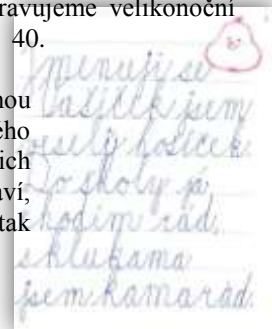 ravujeme velikonoční
40.
nou
ého
ich
aví,
tak
Jmenuji se
Vašíček jsem
veselý hošíček.
Do školy já
chodím rád,
s klukama
jsem kamarád.